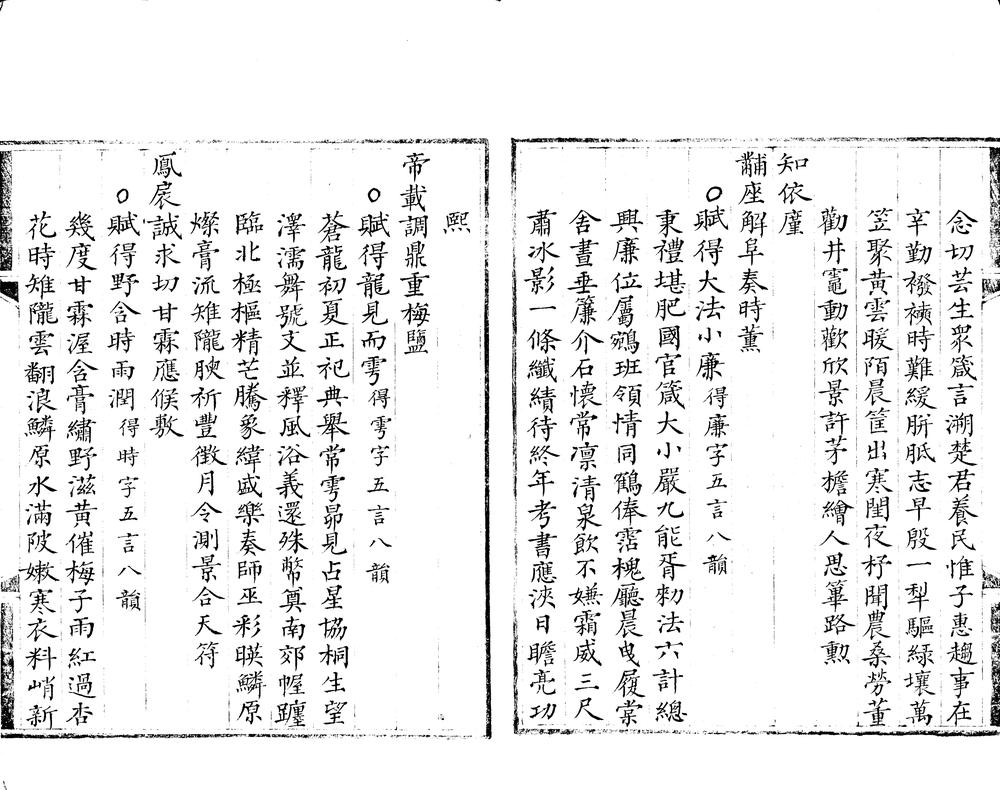 念切芸生衆箴言溯楚君養民惟子惠趨事在
辛勤襏襫時難緩胼胝志早殷一犁驅綠壤萬
笠聚黃雲暖陌晨筐出寒閨夜杼聞農桑勞董
勸井竈動歡欣景許茅檐繪人思蓽路勲
知依廑
黼座解阜奏時薰
○賦得大法小廉得廉字五言八韻
秉禮堪肥國官箴大小嚴九能胥勑法六計總
興廉位屬鵷班領情同鶴俸霑槐廳晨曳履棠
舍晝垂簾介石懷常凛清泉飲不嫌霜威三尺
肅冰影一條纖績待終年考書應浹日瞻亮功
熙
帝載調鼎重梅鹽
○賦得龍見而雩得雩字五言八韻
蒼龍初夏正祀典舉常雩昴見占星協桐生望
澤濡舞號文並釋風浴義還殊幣奠南郊幄躔
臨北極樞精芒騰象緯盛樂奏師巫彩暎鱗原
燦膏流雉隴腴祈豐徴月令測景合天符
鳳扆誠求切甘霖應候敷
○賦得野含時雨潤得時字五言八韻
幾度甘霖渥含膏繡野滋黃催梅子雨紅過杏
花時雉隴雲翻浪鱗原水滿陂嫩寒衣料峭新